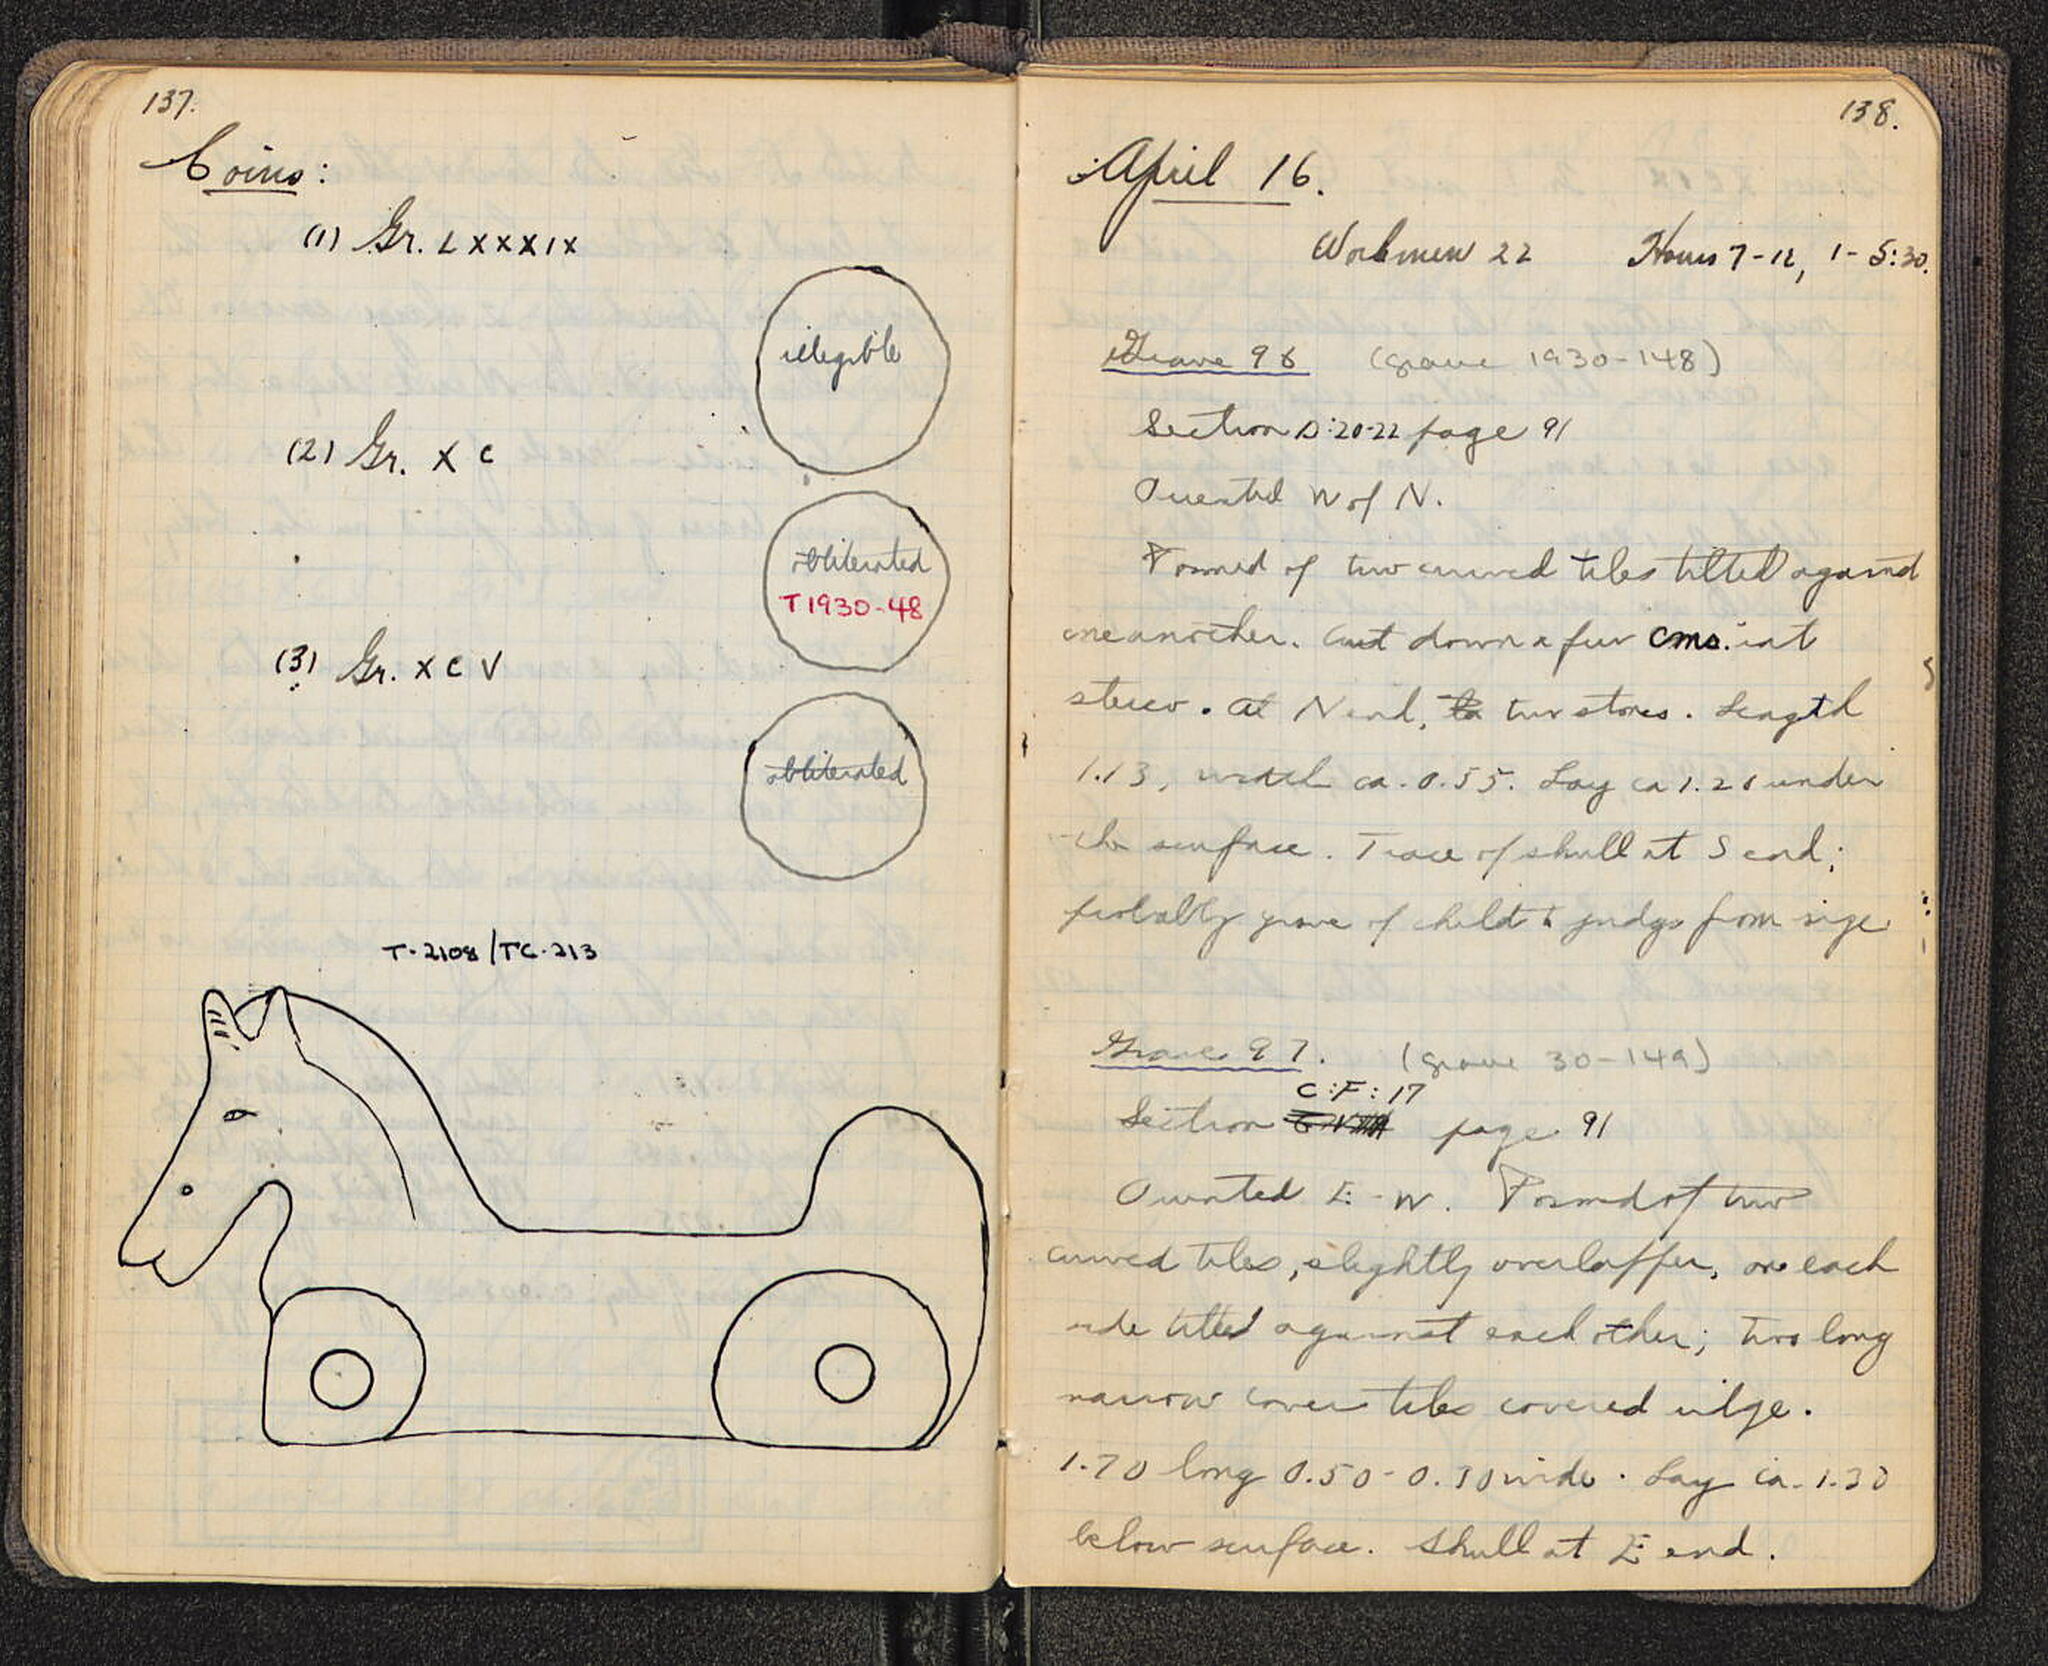 137.
Coins:
(1) Gr. LXXXIX
illegible
(2) Gr. XC
obliterated
T1930-48
(3) Gr. XCV
obliterated
T-2108/TC-213
138.
April 16.
Workmen 22 Hours 7-12, 1-5:30.
Grave 96 (grave 1930-148)
Section D:20-22 page 91
Oriented W of N.
Formed of two curved tiles tilted against
one another. Cut down a few cms. into
stereo. At N end, two stones. Length
1.13, width ca. 0.55. Lay ca 1.20 under
the surface. Trace of skull at S end;
probably grave of child to judge from size
Grave 97. (grave 30-149)
C:F:17
Section page 91
Oriented E-W. Formed of two
curved tiles, slightly overlapping, on each
side tilted against each other; two long
narrow cover tiles covered ridge.
1.70 long 0.50- wide. Lay ca. 1.30
below surface. Skull at E end.